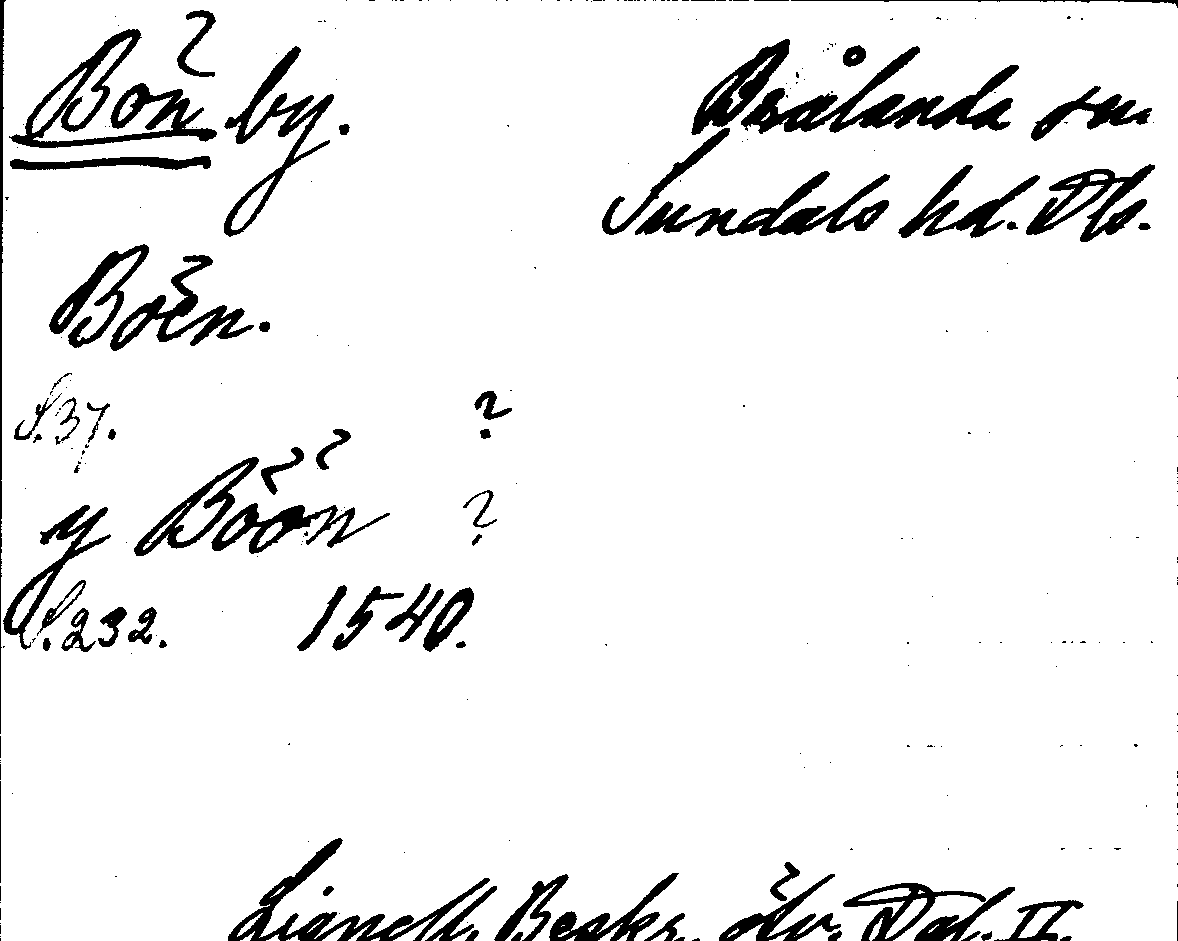 Bön by. Brålanda sn
Sundals hd. Dls.
Böen.
S.37. ?
y Böön ?
S.232. 1540.
Lignell, Beskr. öfv. Dal. II.